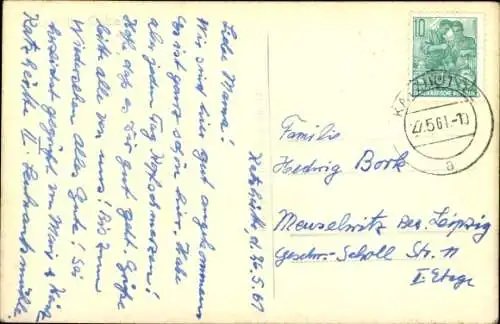 Katzhütte, d. 26.5.61
Liebe Mama!
Wir sind hier gut angekommen
Es ist ganz schön hier. Habe
aber jeden Tag Kopfschmerzen!
Hoffe daß es Dir gut geht. Grüße
bitte alle von uns! Bis zum
Wiedersehen alles Gute! Sei
herzlichst gegrüßt von Mimi &
Katzhütte II.
10
KATZHÜTTE
27.5.61.-10
a
Familie
Hedwig Bork
Meuselwitz Bez. Leipzig
Geschw.-Scholl Str. 11
II. Etage